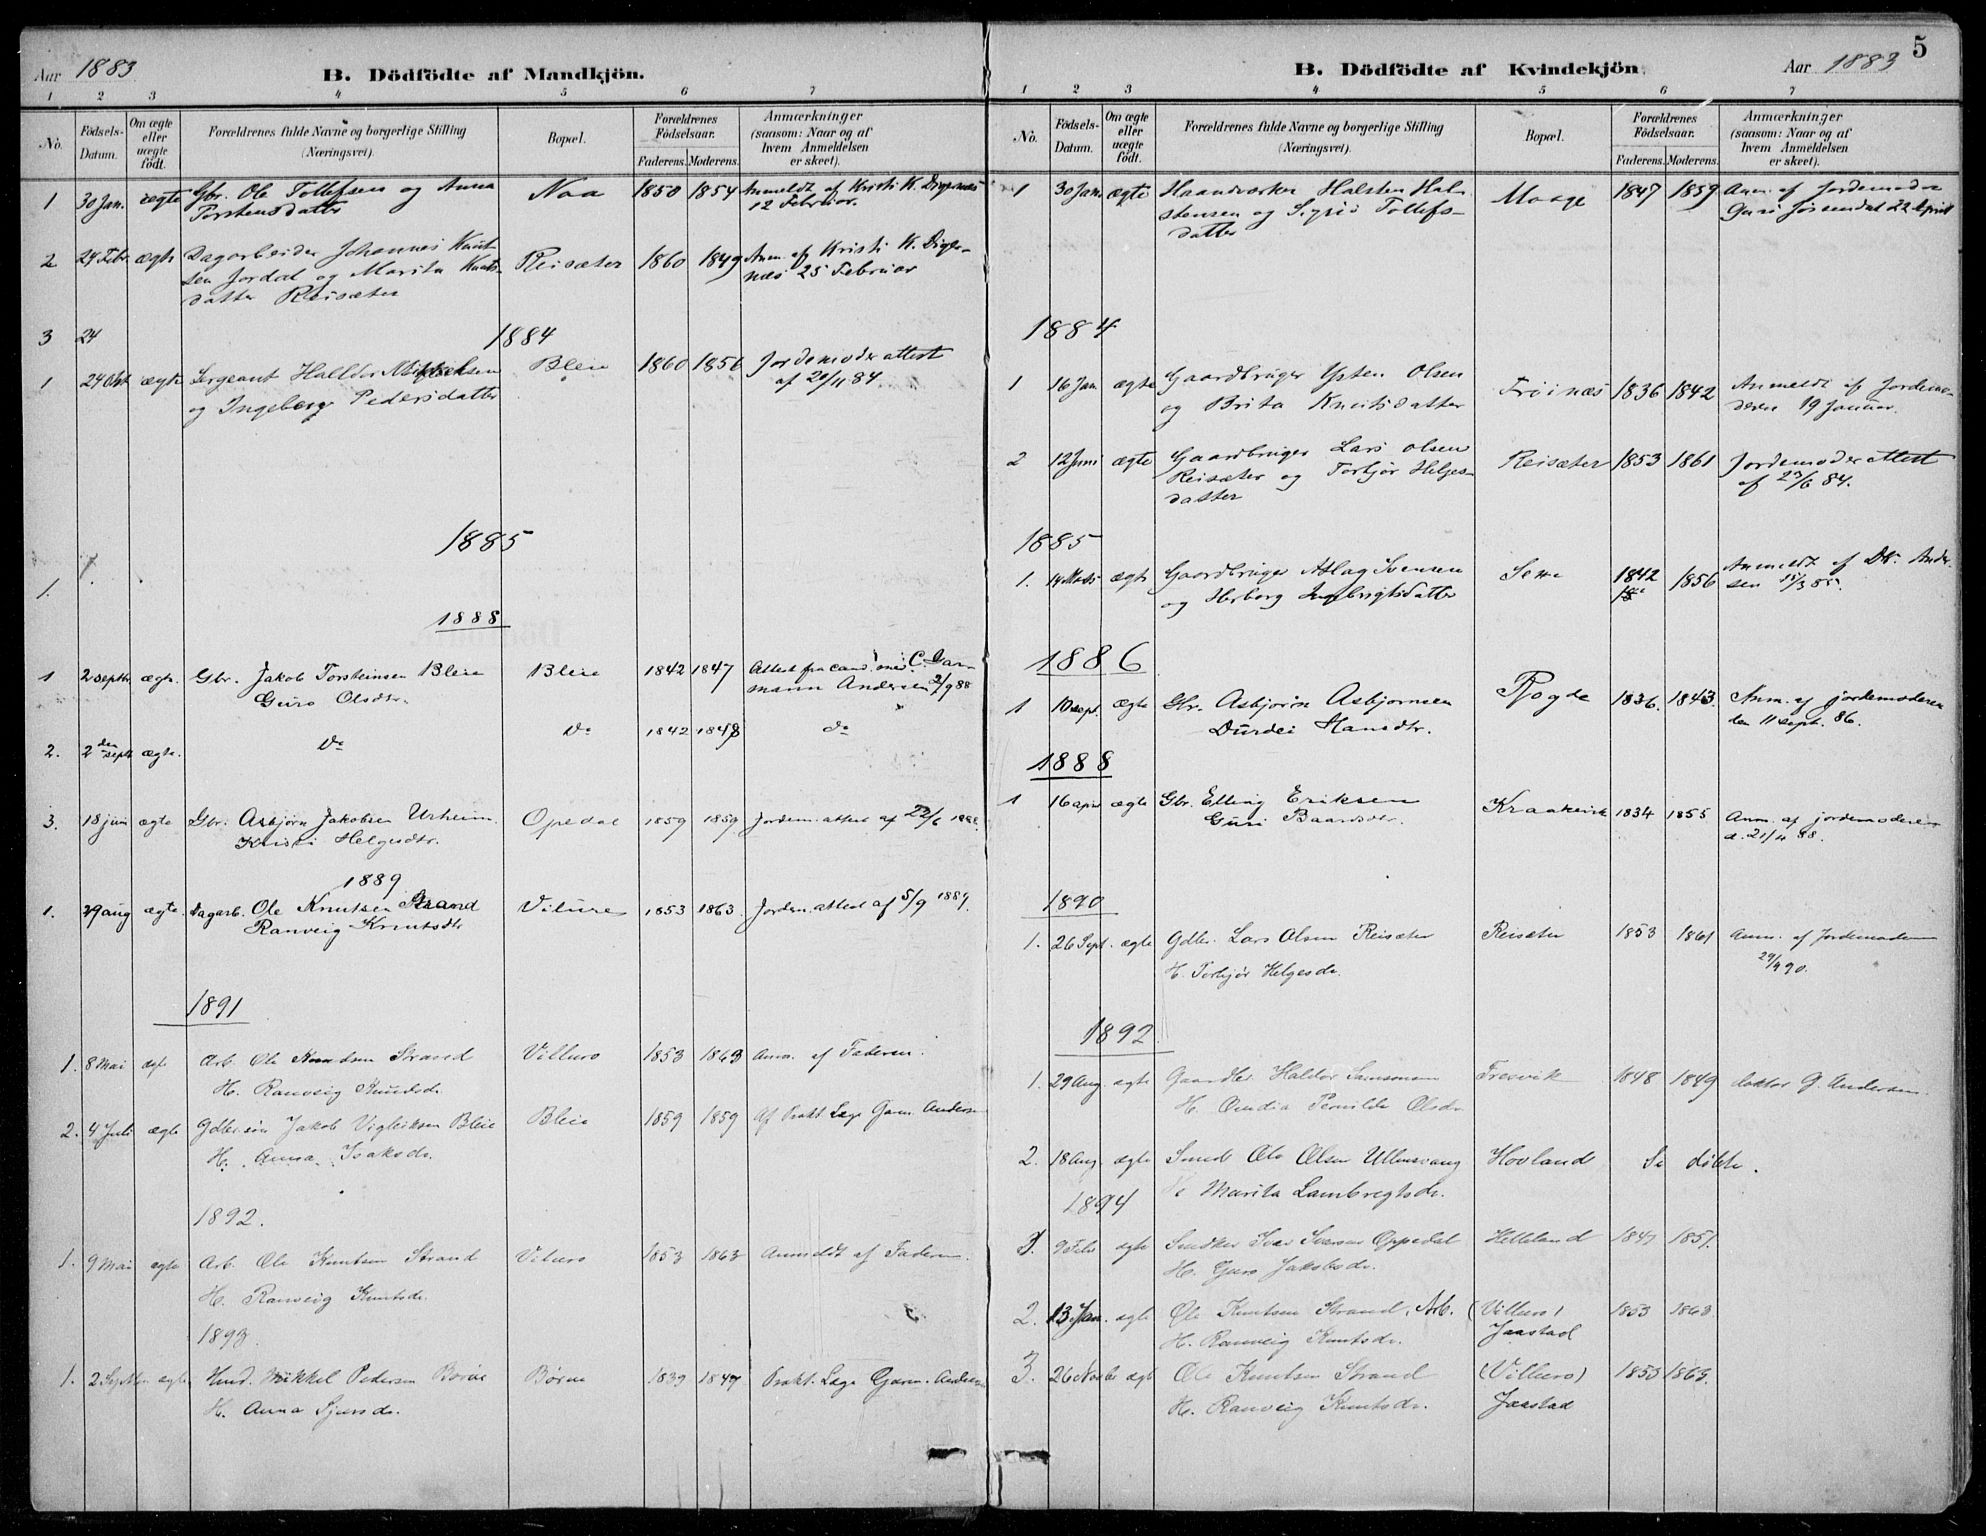 Aar 1883
B. Dödfödte af Mandkjön.
1 2 3 4 5 6 7
No. Födsels-Datum. Om ægte eller uægte födt. Forældrenes fulde Navne og borgerlige Stilling (Næringsvei). Bopæl. Forældrenes Födselsaar. Faderens. Moderens. Anmærkninger (saasom: Naar og af hvem Anmeldelsen er skeet).
1 30 Jan. ægte Gbr. Ole Tollefsen og Anna Naa 1850 1854 Anmeldt af Kristi K. Digernæs
Torstensdatter 12 Februar.
2 24 Febr ægte Dagarbeider Johannes Knut- Reisæter 1860 1849 Anm. af Kristi K. Diger-
sen Jordal og Marita Knuts- næs 25 Februar
datter Reisæter
3 24
1884
1 24 Okt ægte Sergeant Halldor Bleie 1860 1856 Jordemoderattest
og Ingeborg Pedersdatter af 20/11 84
1885
1.
1888
1 2 septb. ægte. Gbr. Jakob Torsteinsen Bleie Bleie 1842 1847 Attest fra cand. med. C. Gar-
Guro Olsdtr. mann Andersen 2/9 88
2. 2 den septb ægte. Do Do 1842 1848 do
3. 18 juni ægte Gbr. Asbjørn Jakobsen Urheim Opedal 1859 1859 Jordem. attest af 22/6 1888.
Kristi Helgesdtr.
1889
1. 29 aug ægte Dagarb. Ole Knutsen Strand Vilure 1853 1863. Jordem. attest af 5/9 1889.
Ranveig Knutsdtr
1891
1. 8 Mai ægte Arb. Ole Knudsen Strand Villuro 1853 1863 Anm. af Faderen.
H. Ranveig Knudsdr.
2. 4 Juli ægte Gdbrsøn Jakob Vigleiksen Bleie Bleie 1859 1859 Af Prakt. Læge Garm. Andersen
H. Anna Isaksdr.
1892.
1. 9 Mai ægte Arb. Ole Knutsen Strand Viluro 1853 1863 Anmeldt af Faderen.
H. Ranveig Knutsdr.
1893.
1. 2 Septbr ægte Hmd. Mikkel Pedersen Børve Børve 1839 1847 Prakt. Læge Garm. Andersen
H. Anna Sjursdr.
5
B. Dödfödte af Kvindekjön. Aar 1883
1 2 3 4 5 6 7
No. Födsels-Datum. Om ægte eller uægte födt. Forældrenes fulde Navne og borgerlige Stilling (Næringsvei). Bopæl. Forældrenes Födselsaar. Faderens. Moderens. Anmærkninger (saasom: Naar og af hvem Anmeldelsen er skeet).
1 30 Jan. ægte Haandværker Halsten Hal- Maage 1847 1859 Anm. af Jordemoder
stensen og Sigrid Tollefs- 22 April
datter
1884
1 16 Jan. ægte Gaardbruger Østen Olsen Frøinæs 1836 1842 Anmeldt af Jordemo-
og Brita Knutsdatter deren 19 Januar.
2 12 Juni ægte Gaardbruger Lars Olsen Reisæter 1853 1861 Jordemoderattest
Reisæter og Torbjør Helges- af 23/6 84.
datter
1885
1. 14 Marts ægte Gaardbruger Aslag Svensen Sexe 1842 1856 Anmeldt af Dr. Ander-
og Herborg Ingebrigtsdatter sen 15/3 85.
1886
1 10 sept. ægte Gbr. Asbjørn Asbjørnsen 1836. 1843. Anm. af jordemoderen
Durdei Hansdtr. den 11 sept. 86.
1888
1 16 april ægte Gbr. Elling Eriksen Kraakevik 1834 1855 Anm. af jordemoderen
Guri Baardsdtr. d. 21/4 88.
1890
1. 26 Sept. ægte Gdbr. Lars Olsen Reisæter Reisæter 1853 1861 Anm. af Jordemoderen
H. Torbjør Helgesdr. 29/9 90.
1892.
1. 29 Aug. ægte Gaardbr. Haldor Samsonsen Fresvik 1848 1849 doktor G. Andersen.
H. Pernilde Olsdr.
2. 18 Aug. ægte Smed Ole Olsen Ullensvang Hovland Se døbte.
H. Marita Lambregtsdr.
1894
1. 9 Febr ægte Ivar Oppedal Helleland 1851.
H. Guro Jakobsdr.
2. 13 Jan. ægte Ole Knutsen Strand, Arb. (Villuro) 1853 1863
H. Ranveig Knutsdr. Jaastad
3. 26 Novbr ægte Ole Knutsen Strand (Villuro) 1853 1863.
H. Ranveig Knutsdr. Jaastad